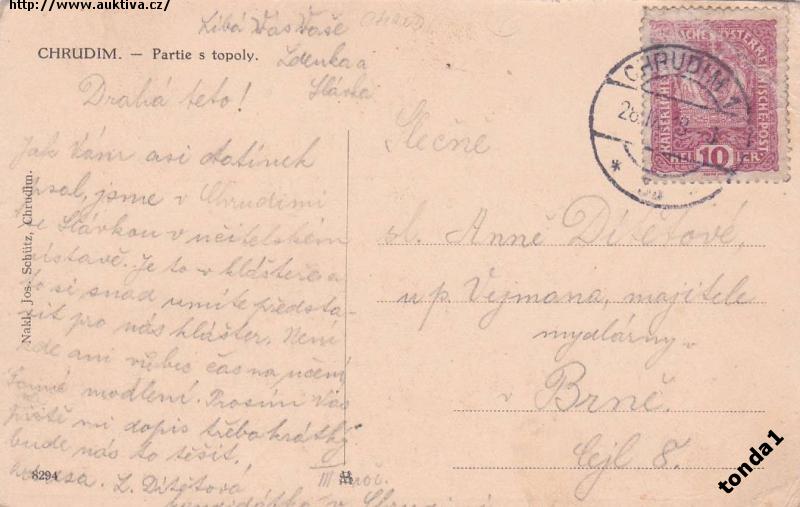 http://www.auktiva.cz/
Líbá Vás Vaše
Zdenka a
Slávka
CHRUDIM. — Partie s topoly.
Drahá teto!
Jak Vám asi tatínek
psal, jsme v Chrudimi
se Slávkou v učitelském
ústavě. Je to v klášteře a
to si snad umíte předsta-
vit pro nás klášter. Není
zde ani vůbec čas na učení
modlení. Prosím Vás
pište mi dopis třeba krátký
bude nás to těšit.
Z. Dítětová
III roč.
kandidátka v Chrudimi
Nakl. Jos. Schütz, Chrudim.
8294
CHRUDIM 1
KAISERLICHE
ÖSTERREICHISCHE POST
HELLER
10
Slečně
sl. Anně Dítětové,
u p. Vejmana, majitele
mydlárny v
Brně.
Cejl 8.
tonda1